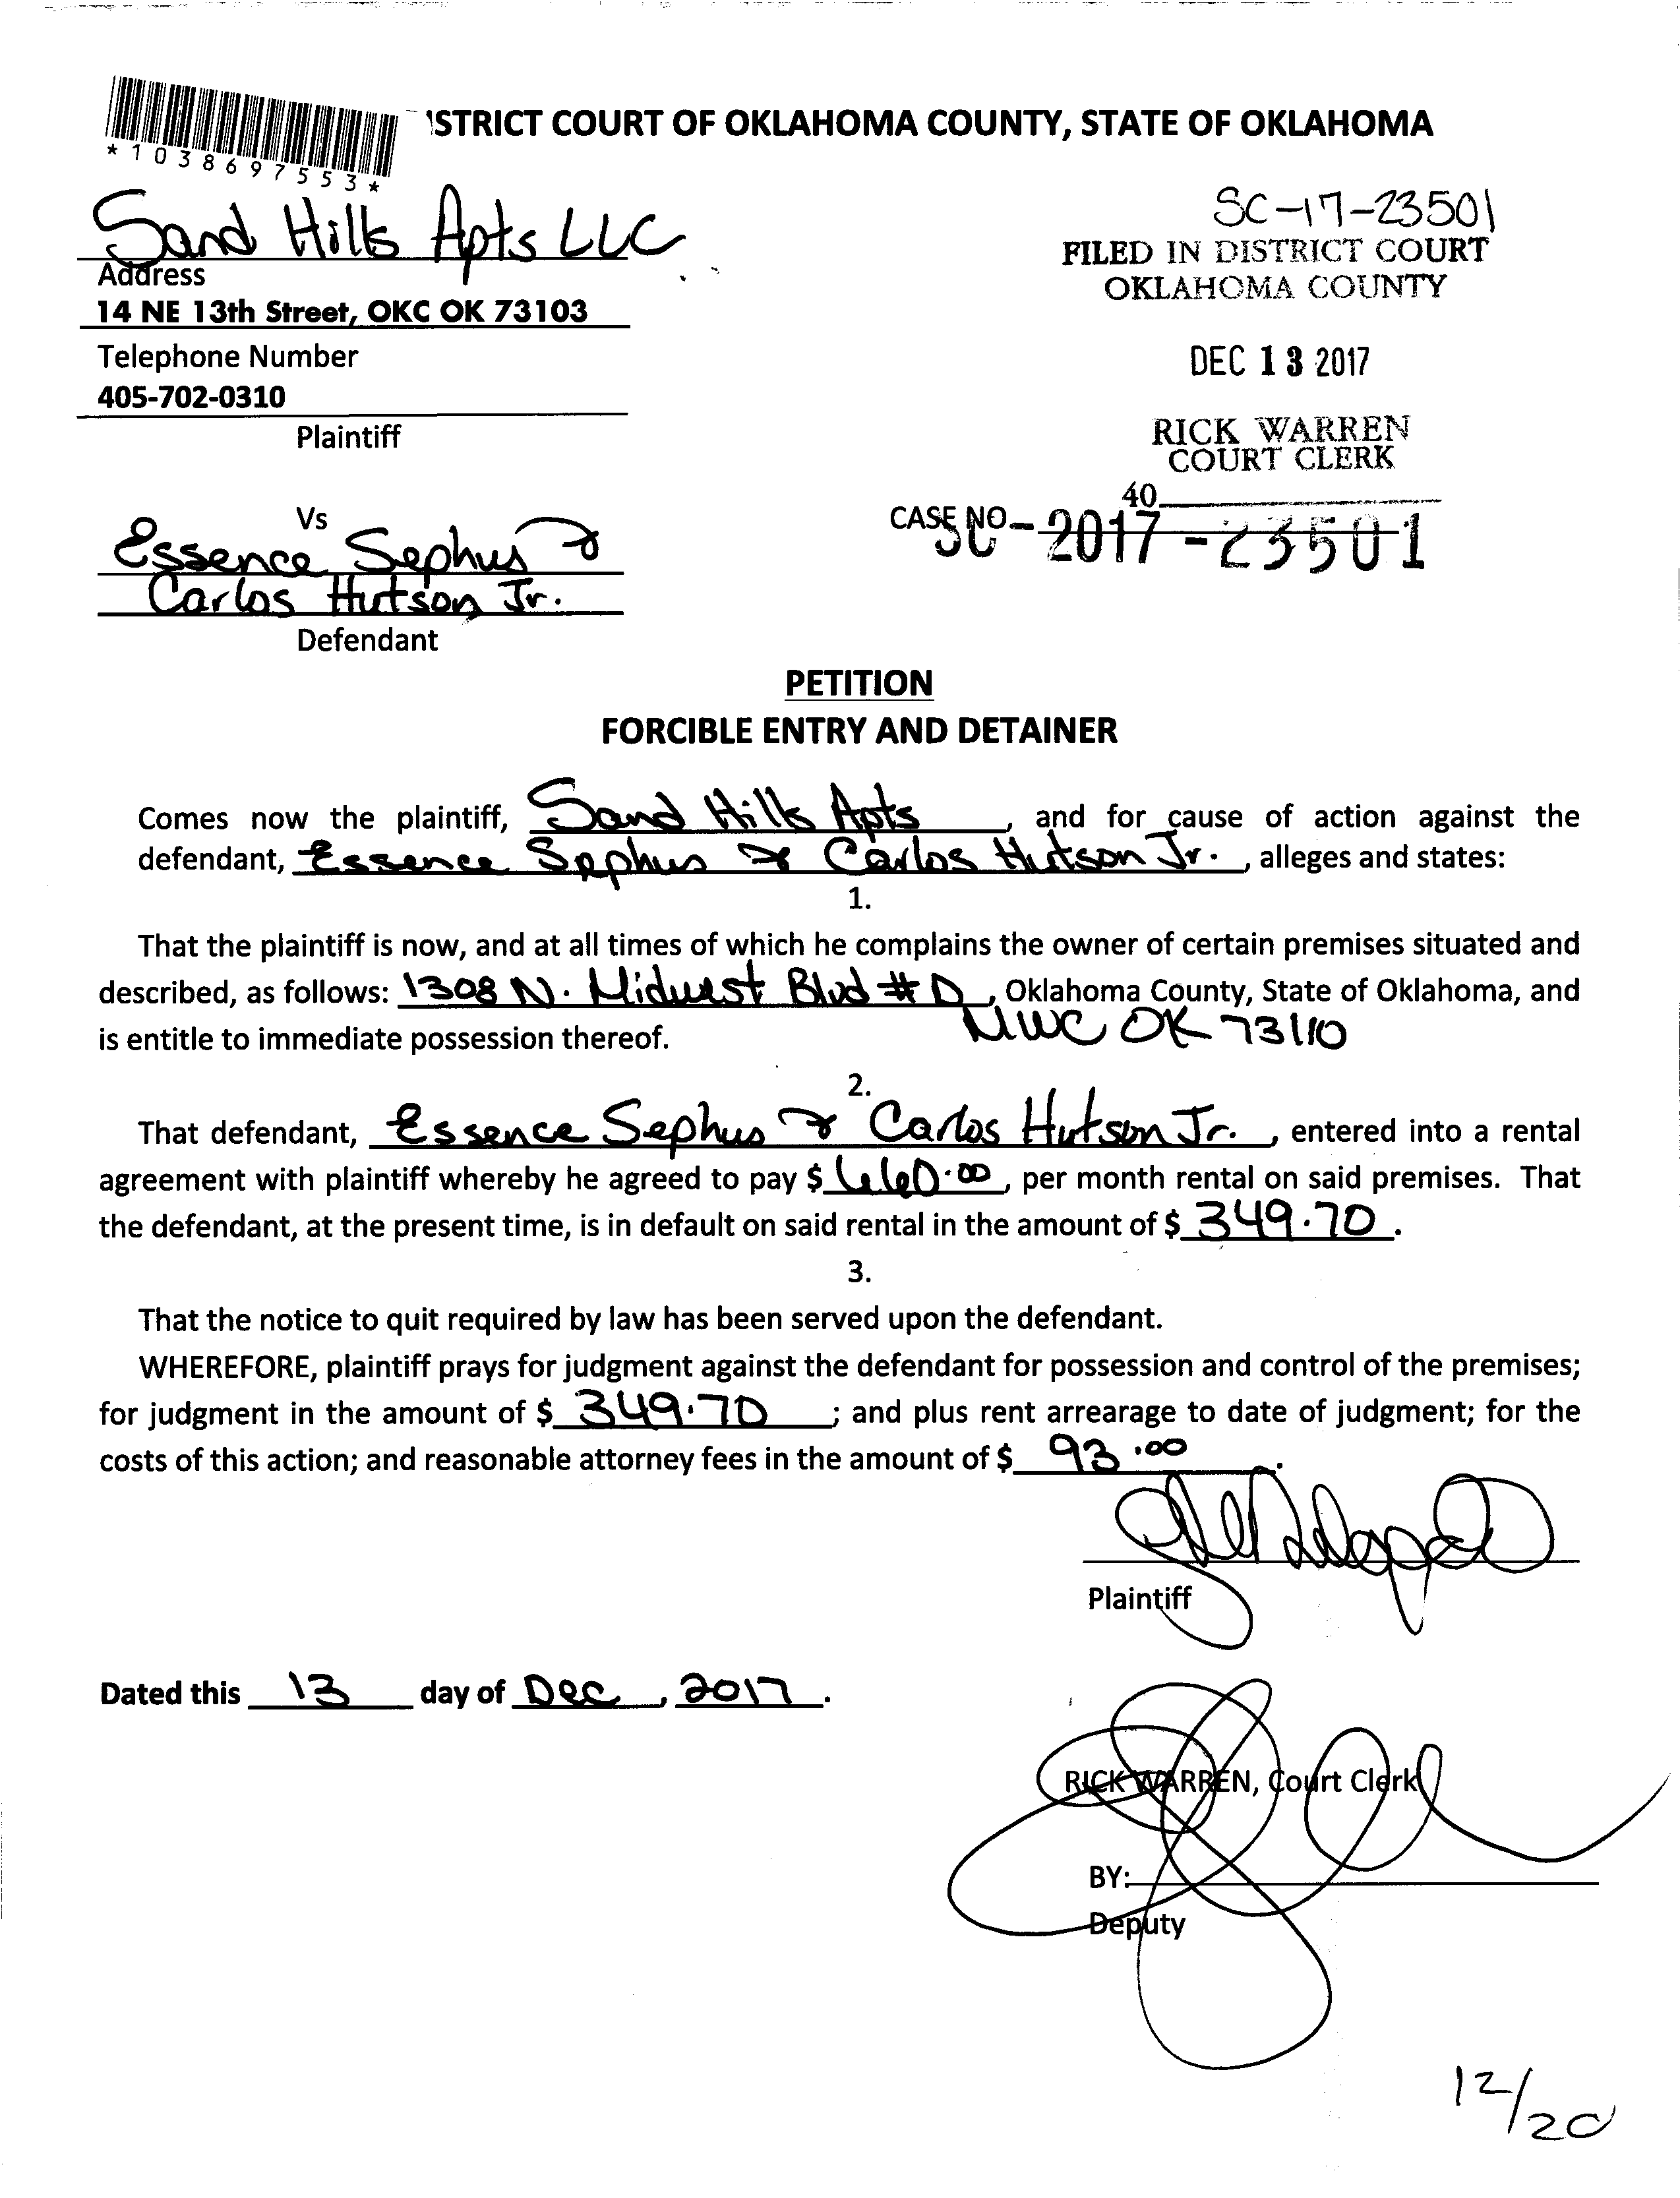 STRICT COURT OF OKLAHOMA COUNTY, STATE OF OKLAHOMA
*1038697553*
Sand Hills Apts LLC
Address
14 NE 13th Street, OKC OK 73103
Telephone Number
405-702-0310
Plaintiff
SC-17-23501
FILED IN DISTRICT COURT
OKLAHOMA COUNTY
DEC 13 2017
RICK WARREN
COURT CLERK
40
CASE NO. SC-2017-23501
Vs
Essence Sephus &
Carlos Hutson Jr.
Defendant
PETITION
FORCIBLE ENTRY AND DETAINER
Comes now the plaintiff, Sand Hills Apts, and for cause of action against the
defendant, Essence Sephus & Carlos Hutson Jr., alleges and states:
1.
That the plaintiff is now, and at all times of which he complains the owner of certain premises situated and
described, as follows: 1308 N. Midwest Blvd #D, Oklahoma County, State of Oklahoma, and
is entitle to immediate possession thereof. MWC OK 73110
2.
That defendant, Essence Sephus & Carlos Hutson Jr., entered into a rental
agreement with plaintiff whereby he agreed to pay $660.00, per month rental on said premises. That
the defendant, at the present time, is in default on said rental in the amount of $349.70.
3.
That the notice to quit required by law has been served upon the defendant.
WHEREFORE, plaintiff prays for judgment against the defendant for possession and control of the premises;
for judgment in the amount of $349.70; and plus rent arrearage to date of judgment; for the
costs of this action; and reasonable attorney fees in the amount of $93.00.
Plaintiff
Dated this 13 day of Dec, 2017.
RICK WARREN, Court Clerk
BY:
Deputy
12/20